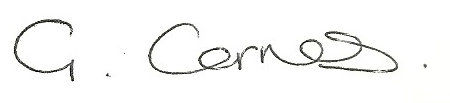 G. Cernes.